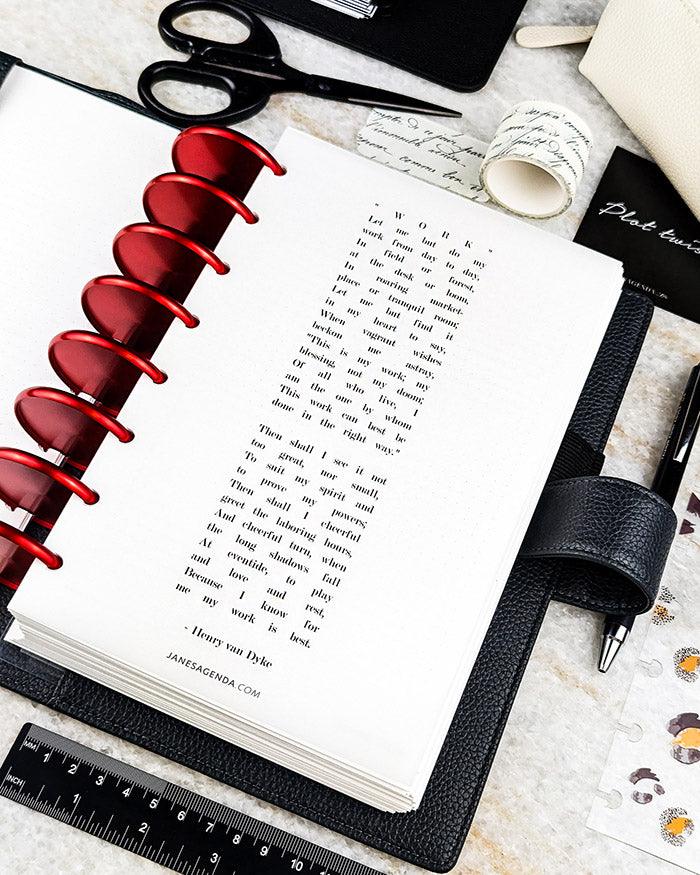 " W O R K "
Let me but do my
work from day to day,
In field or forest,
at the desk or loom,
In roaring market-
place or tranquil room;
Let me but find it
in my heart to say,
When vagrant wishes
beckon me astray,
"This is my work; my
blessing, not my doom;
Of all who live, I
am the one by whom
This work can best be
done in the right way."
Then shall I see it not
too great, nor small,
To suit my spirit and
to prove my powers;
Then shall I cheerful
greet the laboring hours,
And cheerful turn, when
the long shadows fall
At eventide, to play
and love and rest,
Because I know for
me my work is best.
- Henry van Dyke
JANESAGENDA.COM
Plot twis
MM 1 2 3 4 5 6 7 8 9 10
INCH 1 2 3